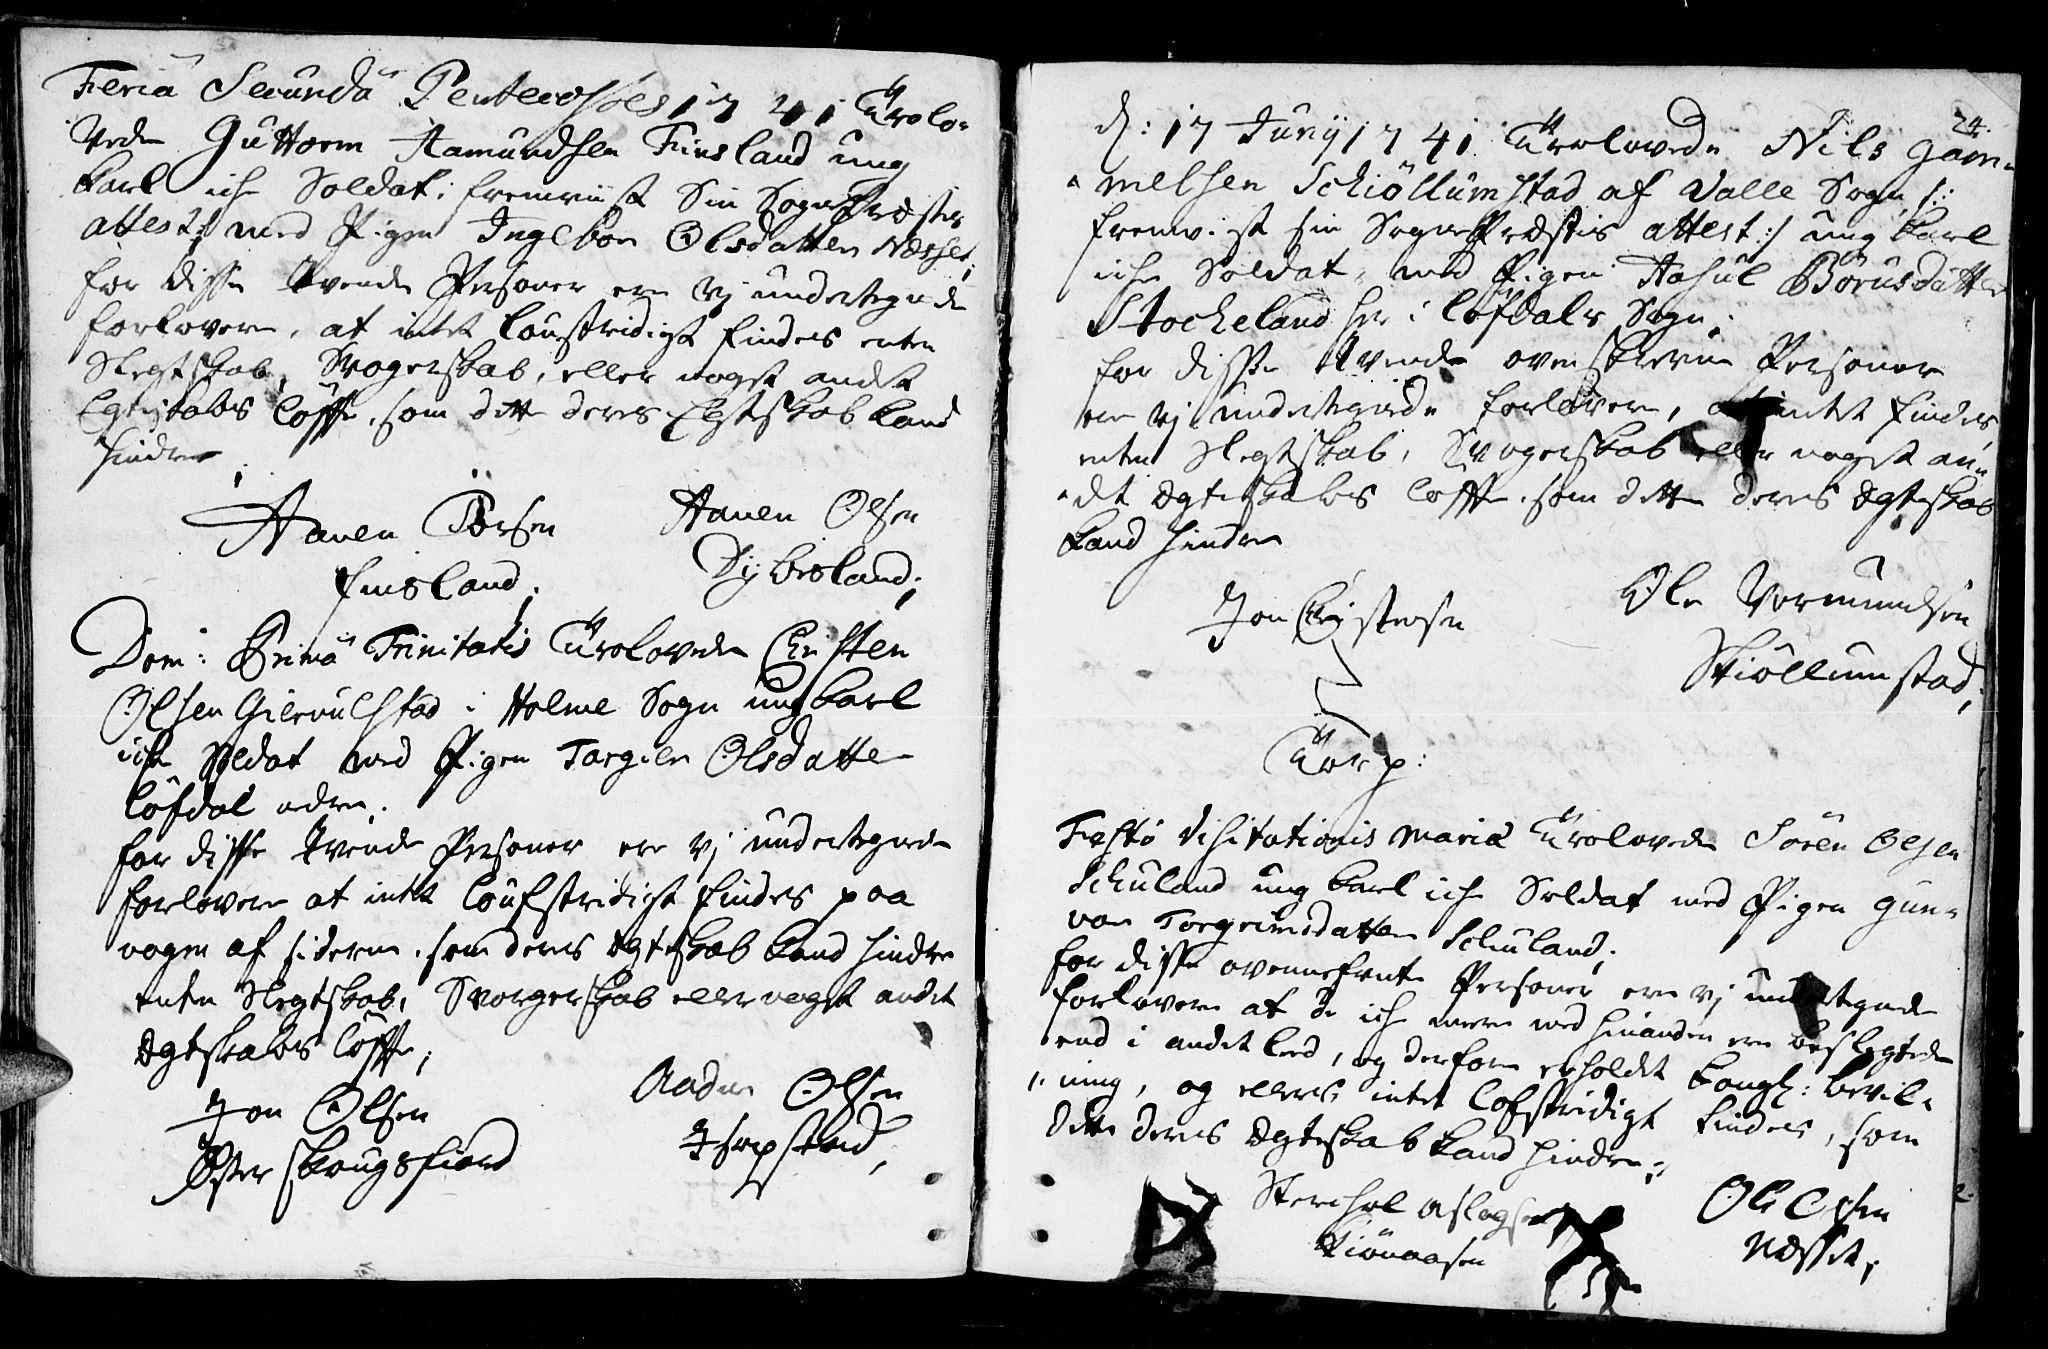 Feria Secunda Pentecostes 1741 Trolo-
vede Guttorm Aamundsen Finsland ung
karl iche Soldat: fremviist Sin Sogne Præstes
attest: med Pigen Ingebor Olsdatter Næsset;
for disse tvende Personer ere vj undertegnede
forlovere, at intet loustridigt findes enten
Slegtskab, Svogerskab, eller noget andet
Egteskabs löffte, som dette deres Egteskab kand
hindre;
Aanen Börsen
Finsland;
Aanen Olsen
Dybesland;
Dom: Prima Trinitatis Trolovede Christen
Olsen Gierulstad i Holme Sogn ung karl
iche Soldat med Pigen Torgile Olsdatter
Löfdal nedre;
for disse tvende Personer ere vj undertegnede
forlovere at intet loufstridigt findes paa
nogen af siderne, som deres Ægteskab kand hindre
enten Slegtskab, Svorgerskab eller noget andet
Ægteskabs löffte;
Jon Olsen
Öster Skougsfiord
Aadne Olsen
24.
d: 17 Junij 1741 Trolovede Nils Gam-
melsen Schiöllumstad af Valle Sogn /:
fremvist sin Sogne Præstis attest:/ ung karl
iche Soldat, med Pigen Aasul Börusdatter
Stockeland her i Löfdals Sogn;
for disse tvende ovenskrevne Personer
ere vj undertegnede forlovere, at intet findes
enten Slegtskab, Svogerskab eller noget an-
det Ægteskabs löffte, som dette deres Ægteskab
kand hindre
Jon Christensen
Ole Vermundsen
Skiöllumstad;
Festo Visitationis Mariæ Trolovede Sören Olsen
Schuland ung karl iche Soldat med Pigen Gun-
vor Torgrimsdatter Schuland;
for disse ovennefnte Personer ere vj undertegnede
forlovere at de iche mere med hinanden ere beslegtede
end i andet leed, og derfore erholdet Kongl: bevil-
ning, og ellers intet lofstridigt findes, som
dette deres Ægteskab kand hindre;
Aslagsen
Ole Olsen
Næsset;